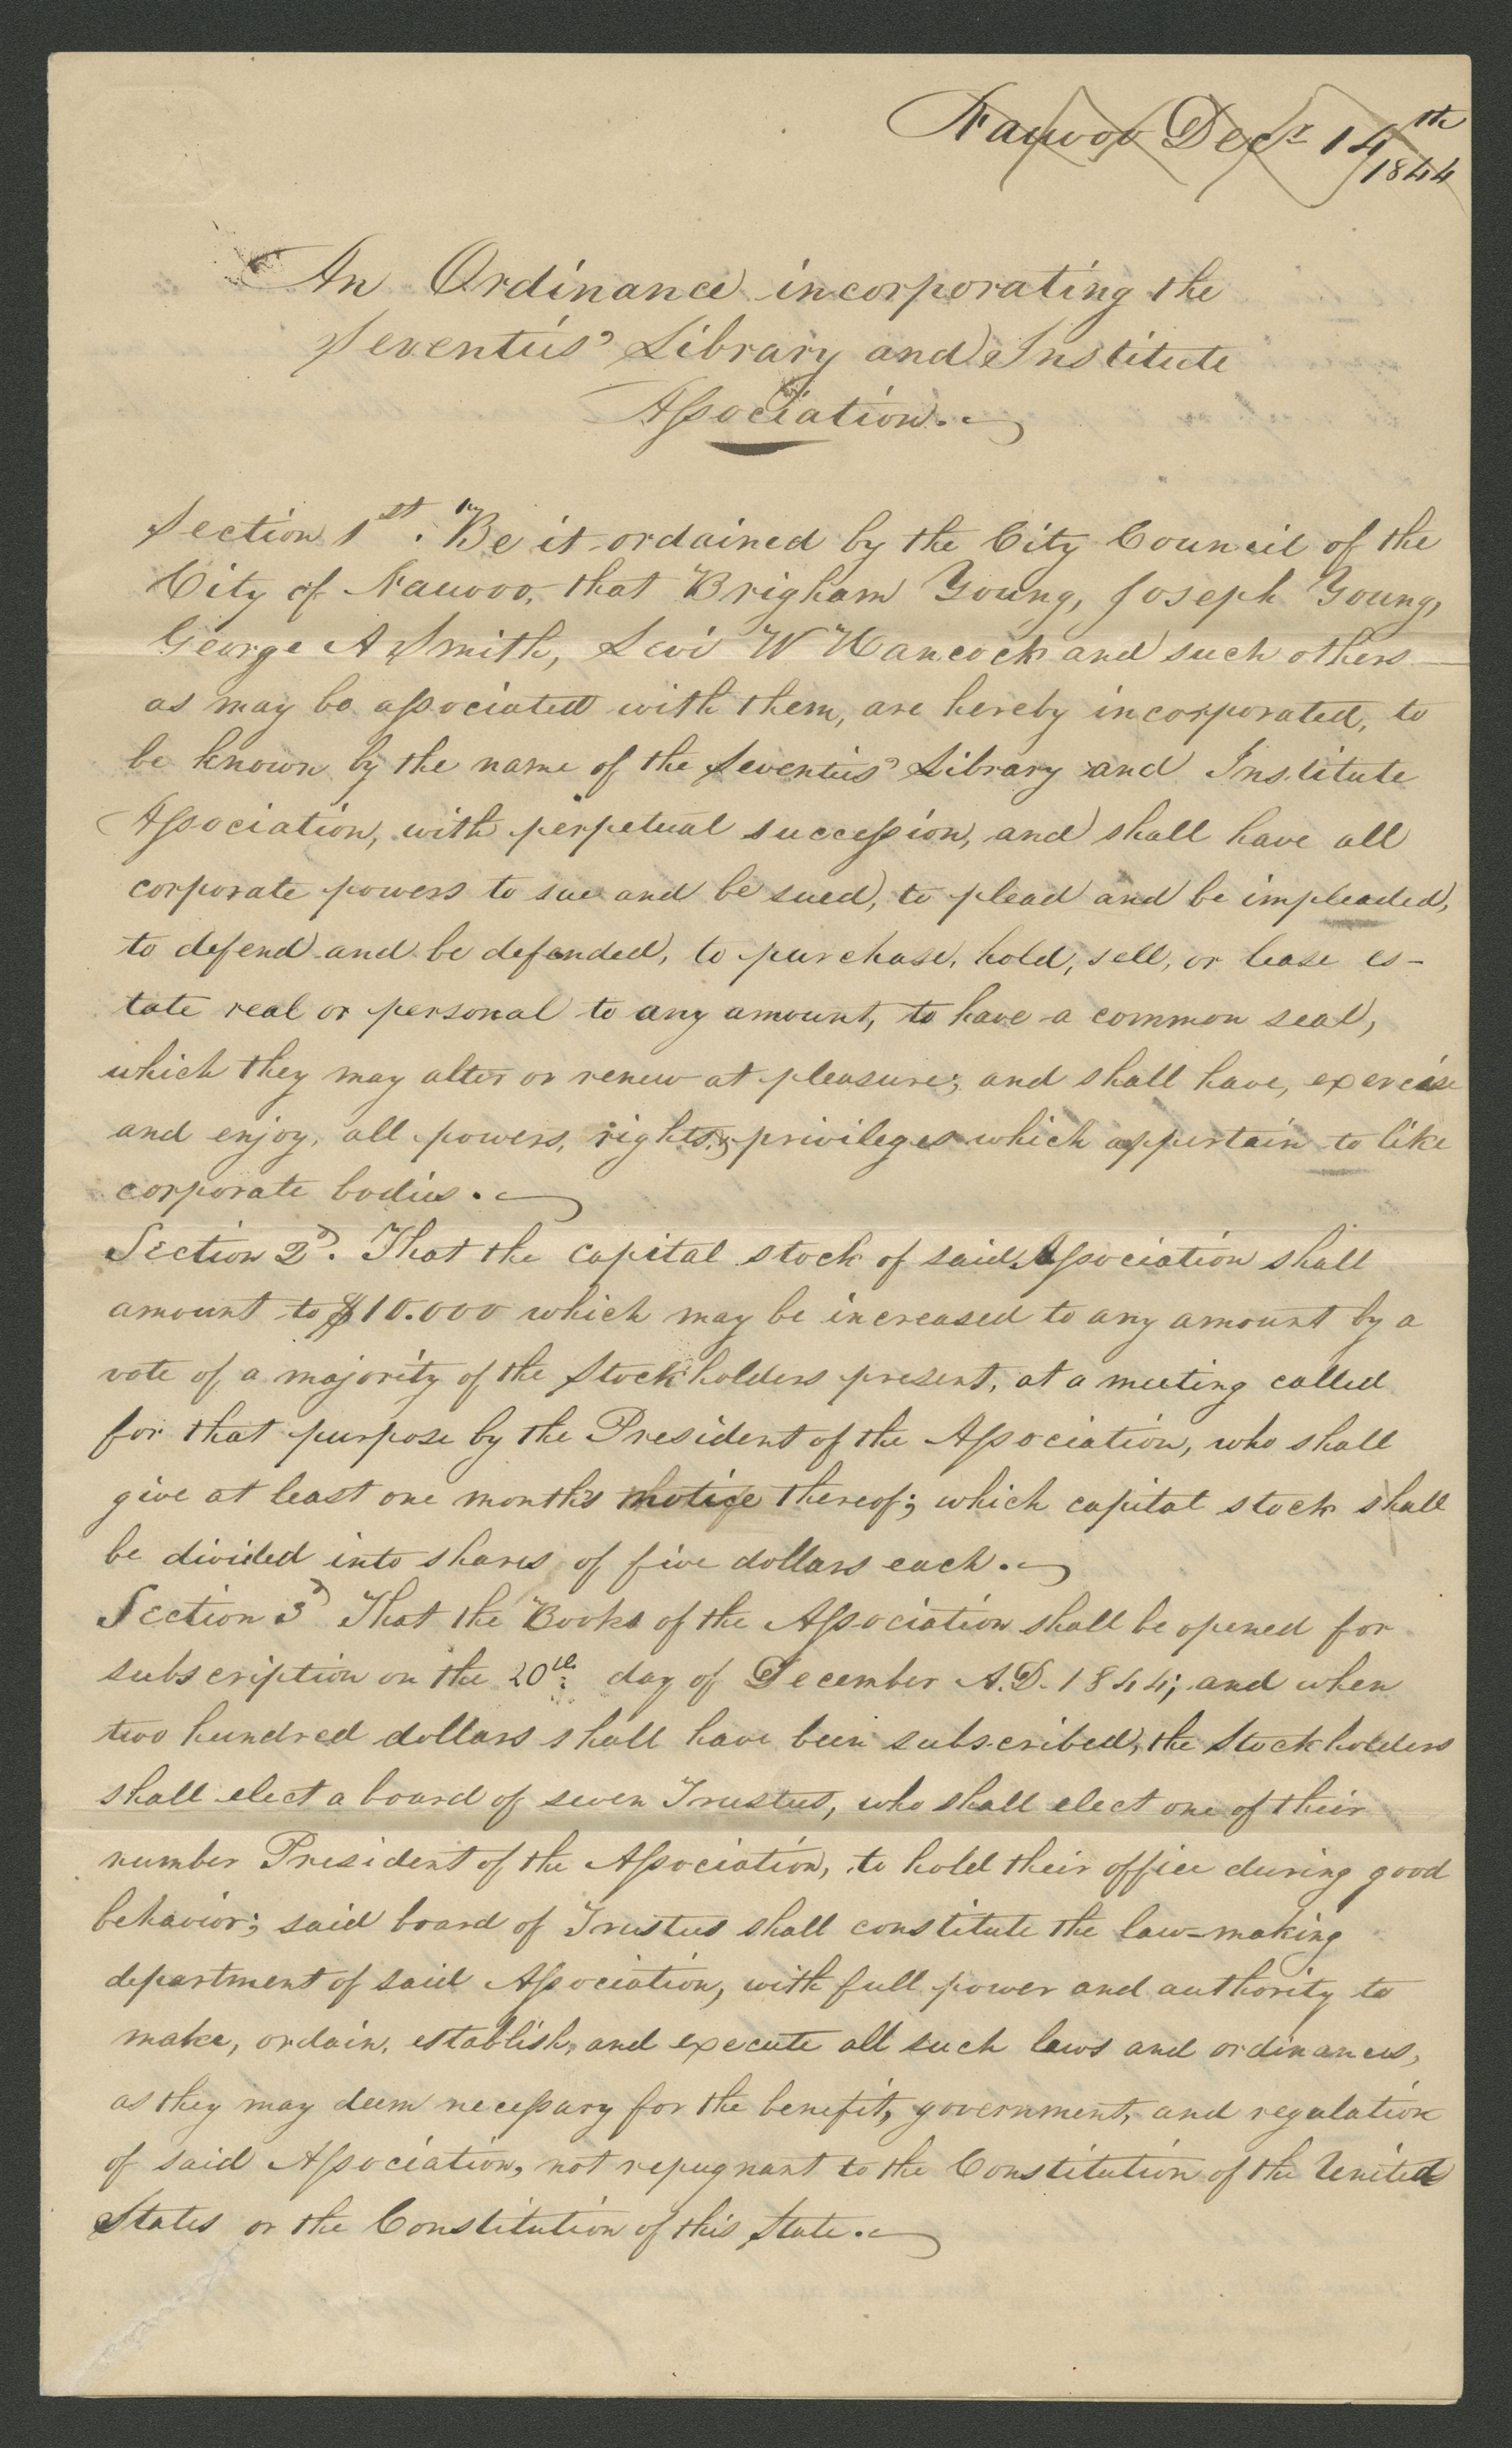 Nauvoo Decr 14th
1844
An Ordinance incorporating the
Seventies' Library and Institute
Association.
Section 1st. Be it ordained by the City Council of the
City of Nauvoo, that Brigham Young, Joseph Young,
George A Smith, Levi W Hancock and such others
as may be associated with them, are hereby incorporated, to
be known by the name of the Seventies' Library and Institute
Association, with perpetual succession, and shall have all
corporate powers to sue and be sued, to plead and be impleaded,
to defend and be defended, to purchase, hold, sell, or lease es-
tate real or personal to any amount, to have a common seal,
which they may alter or renew at pleasure; and shall have, exercise
and enjoy, all powers, rights, & privileges which appertain to like
corporate bodies.
Section 2d. That the capital stock of said Association shall
amount to $10.000 which may be increased to any amount by a
vote of a majority of the Stockholders present, at a meeting called
for that purpose by the President of the Association, who shall
give at least one month's notice thereof; which capital stock shall
be divided into shares of five dollars each.
Section 3d That the Books of the Association shall be opened for
subscription on the 20th day of December A.D. 1844; and when
two hundred dollars shall have been subscribed, the Stockholders
shall elect a board of seven Trustees, who shall elect one of their
number President of the Association, to hold their office during good
behavior; said board of Trustees shall constitute the law-making
department of said Association, with full power and authority to
make, ordain, establish, and execute all such laws and ordinances,
as they may deem necessary for the benefit, government, and regulation
of said Association, not repugnant to the Constitution of the United
States or the Constitution of this State.